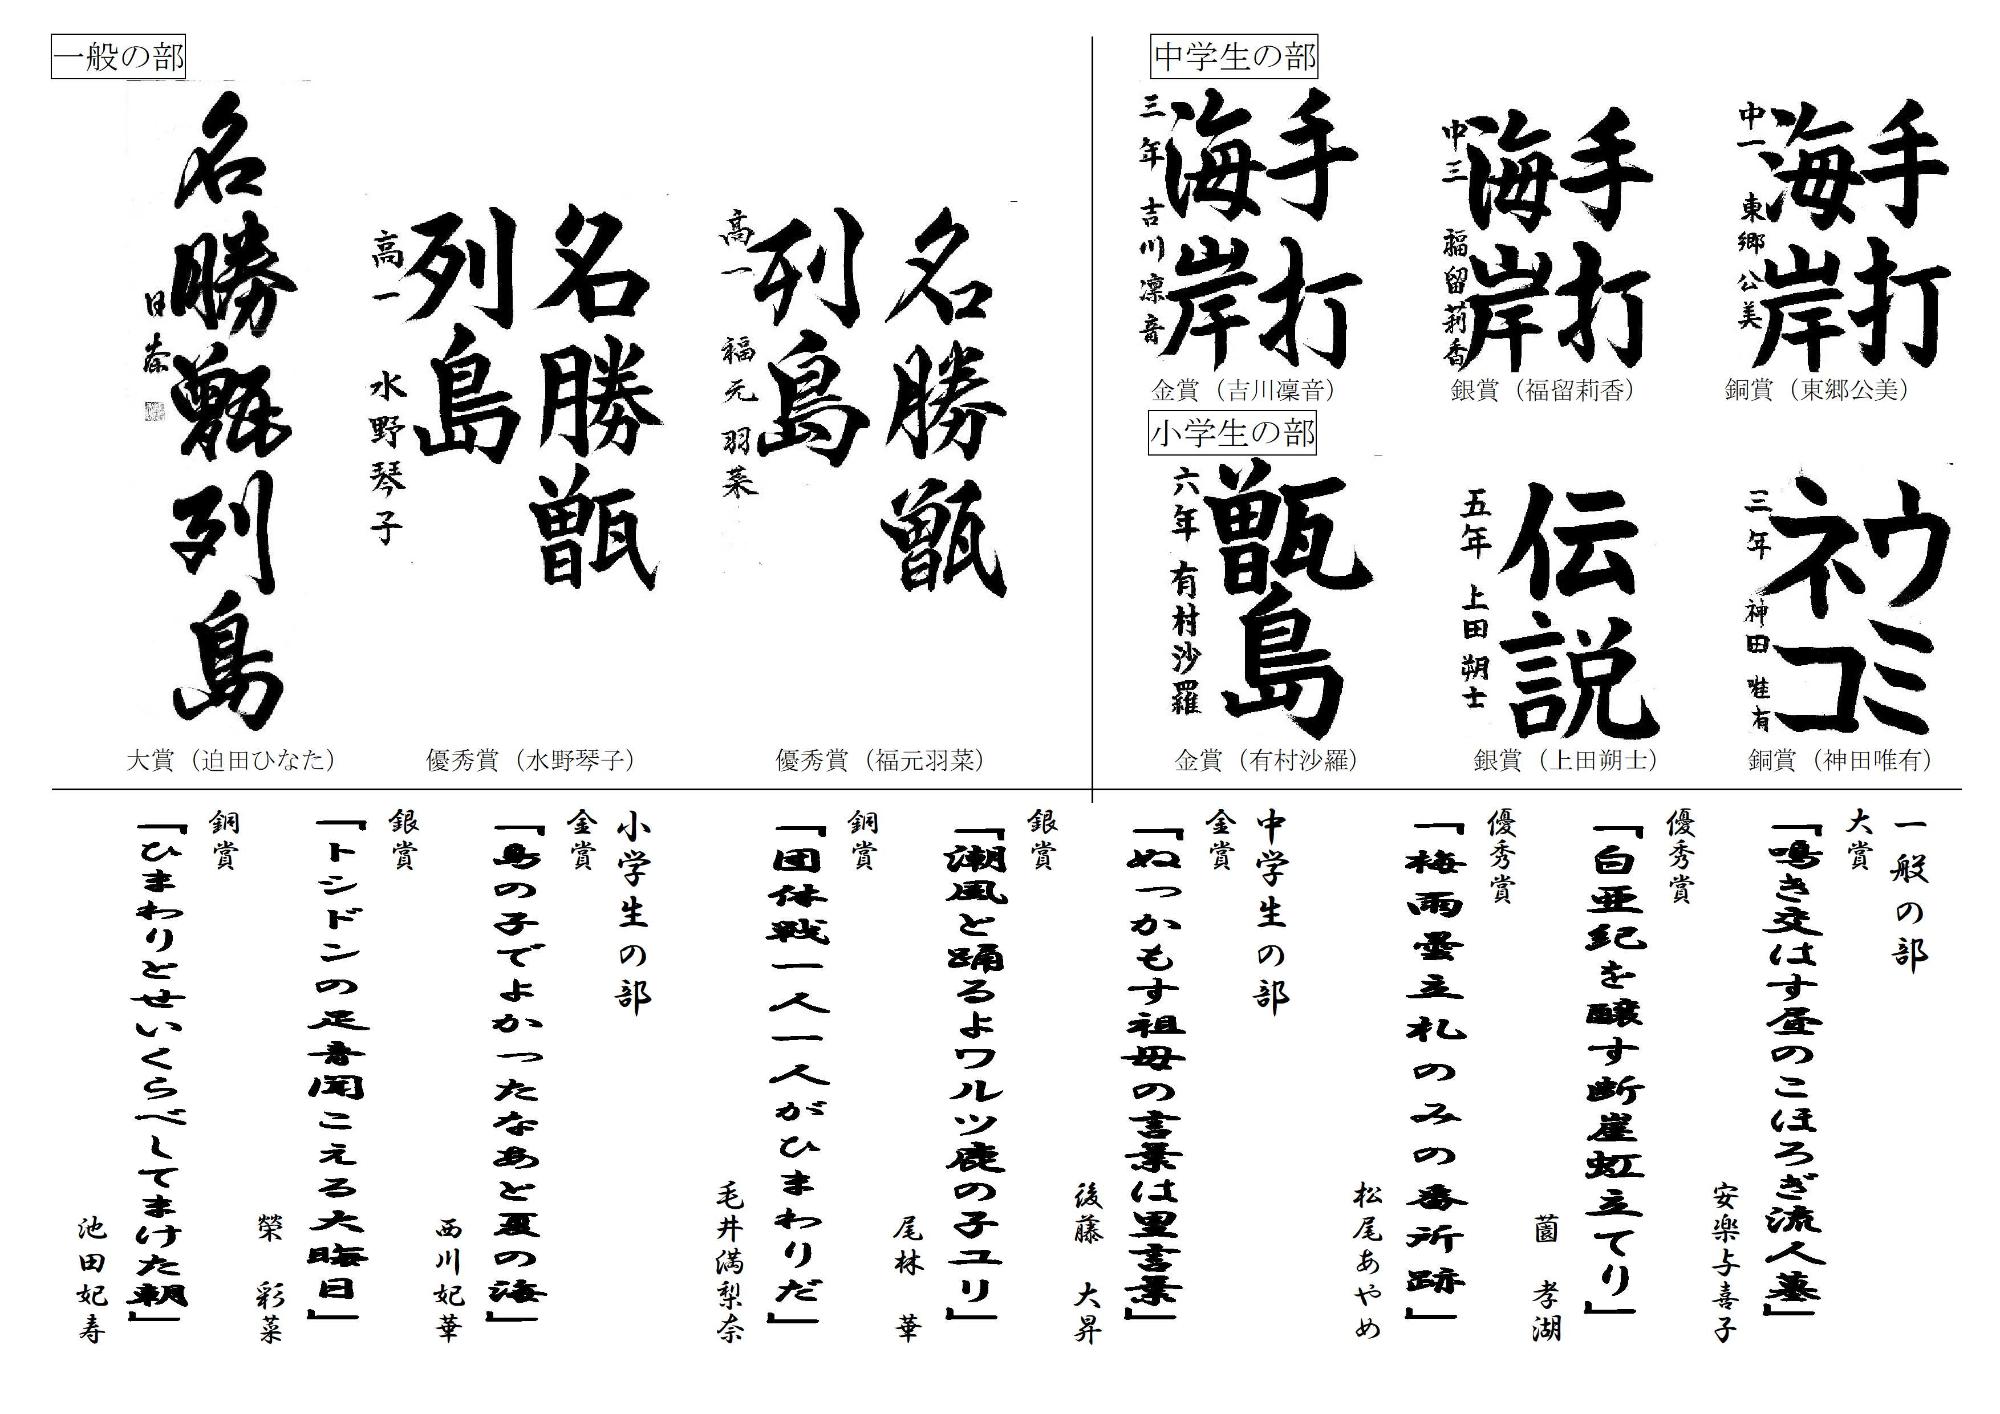 一般の部
名勝甑列島
日奈
大賞（迫田ひなた）
名勝甑
列島
高一 水野琴子
優秀賞（水野琴子）
名勝甑
列島
高一 福元羽菜
優秀賞（福元羽菜）
中学生の部
手打
海岸
三年 吉川凛音
金賞（吉川凛音）
手打
海岸
中三 福留莉香
銀賞（福留莉香）
手打
海岸
中一 東郷公美
銅賞（東郷公美）
小学生の部
甑島
六年 有村沙羅
金賞（有村沙羅）
伝説
五年 上田朔士
銀賞（上田朔士）
ウミ
ネコ
三年 神田唯有
銅賞（神田唯有）
一般の部
大賞
「鳴き交はす昼のこほろぎ流人墓」
安楽与喜子
優秀賞
「白亜紀を醸す断崖虹立てり」
薗 孝湖
優秀賞
「梅雨曇立札のみの番所跡」
松尾あやめ
中学生の部
金賞
「ぬっかもす祖母の言葉は里言葉」
後藤 大昇
銀賞
「潮風と踊るよワルツ鹿の子ユリ」
尾林 華
銅賞
「団体戦一人一人がひまわりだ」
毛井満梨奈
小学生の部
金賞
「島の子でよかったなあと夏の海」
西川妃華
銀賞
「トシドンの足音聞こえる大晦日」
榮 彩菜
銅賞
「ひまわりとせいくらべしてまけた朝」
池田妃寿